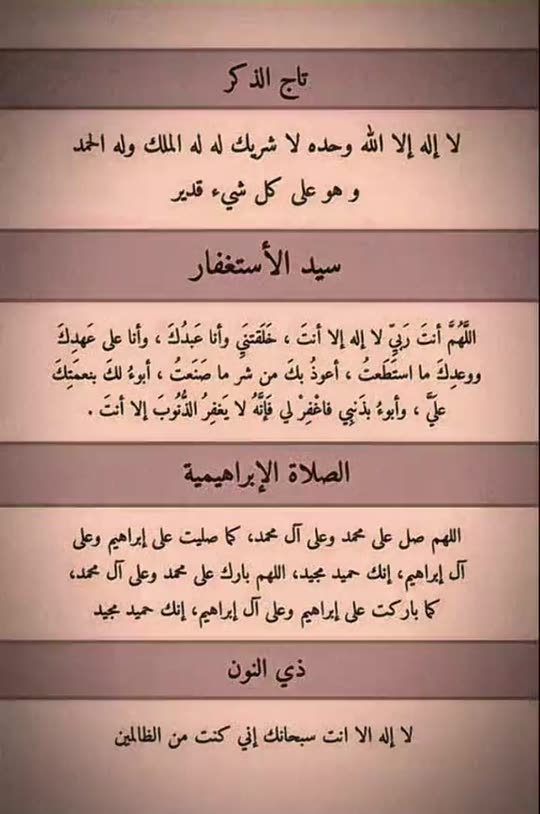 تاج الذكر
لا إله إلا الله وحده لا شريك له له الملك وله الحمد
و هو على كل شيء قدير
سيد الأستغفار
اللَّهُمَّ أنتَ رَبِيِّ لا إله إلا أنتَ ، خَلَقتنَيِ وأنا عَبدُكَ ، وأنا على عَهدِكَ
ووعدِكَ ما استَطَعتُ ، أعوذُ بكَ من شر ما صَنَعتُ ، أبوءُ لكَ بنعمَتِكَ
علَيَّ ، وأبوءُ بذَنبِي فاغْفِرْ لي فَإنَّهُ لا يَغفِرُ الذُّنُوبَ إلا أنتَ .
الصلاة الإبراهيمية
اللهم صل على محمد وعلى آل محمد، كما صليت على إبراهيم وعلى
آل إبراهيم، إنك حميد مجيد، اللهم بارك على محمد وعلى آل محمد،
كما باركت على إبراهيم وعلى آل إبراهيم، إنك حميد مجيد
ذي النون
لا إله الا انت سبحانك إني كنت من الظالمين